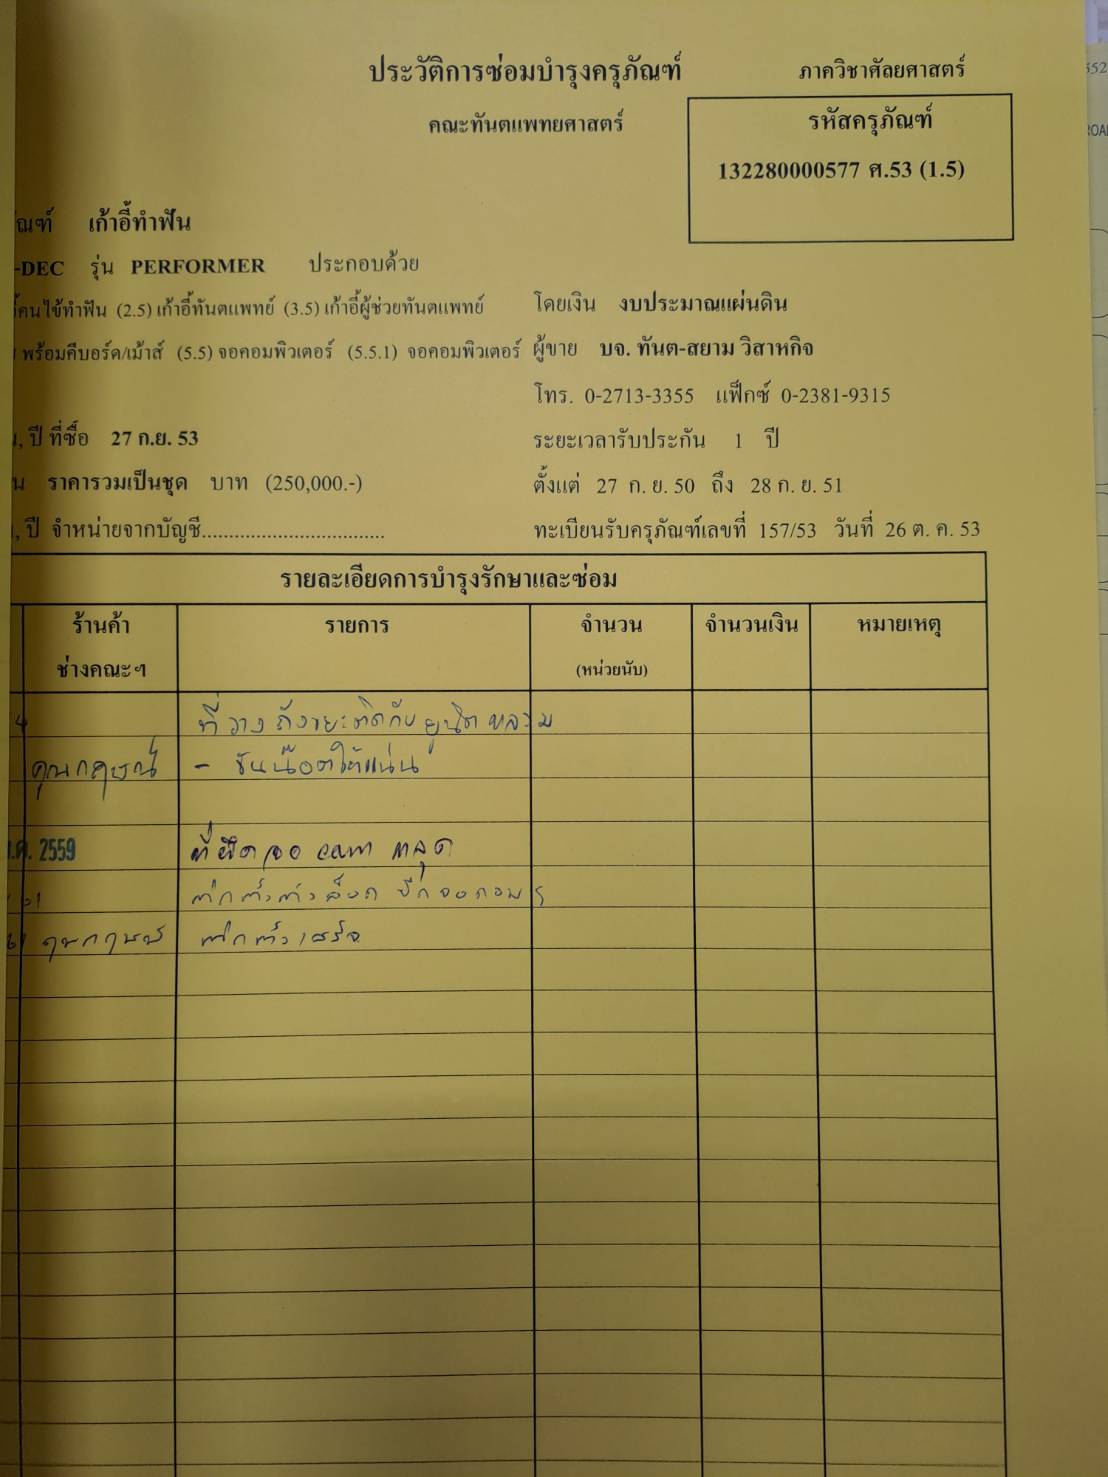 ประวัติการซ่อมบำรุงครุภัณฑ์ ภาควิชาศัลยศาสตร์
คณะทันตแพทยศาสตร์ รหัสครุภัณฑ์
132280000577 ศ.53 (1.5)
ัณฑ์ เก้าอี้ทำฟัน
-DEC รุ่น PERFORMER ประกอบด้วย
คนไข้ทำฟัน (2.5) เก้าอี้ทันตแพทย์ (3.5) เก้าอี้ผู้ช่วยทันตแพทย์ โดยเงิน งบประมาณแผ่นดิน
พร้อมคีบอร์ด/เม้าส์ (5.5) จอคอมพิวเตอร์ (5.5.1) จอคอมพิวเตอร์ ผู้ขาย บจ. ทันต-สยาม วิสาหกิจ
โทร. 0-2713-3355 แฟ็กซ์ 0-2381-9315
, ปี ที่ซื้อ 27 ก.ย. 53 ระยะเวลารับประกัน 1 ปี
น ราคารวมเป็นชุด บาท (250,000.-) ตั้งแต่ 27 ก. ย. 50 ถึง 28 ก. ย. 51
, ปี จำหน่ายจากบัญชี.................................. ทะเบียนรับครุภัณฑ์เลขที่ 157/53 วันที่ 26 ต. ค. 53
รายละเอียดการบำรุงรักษาและซ่อม
ร้านค้า รายการ จำนวน จำนวนเงิน หมายเหตุ
ช่างคณะฯ (หน่วยนับ)
ที่วางถังขยะติดกับยูนิตหลวม
คุณกฤษณ์ - ขันน๊อตให้แน่น
.ค. 2559 ที่ยึดจอ com หลุด
61
คุณกฤษณ์ เสร็จ
552